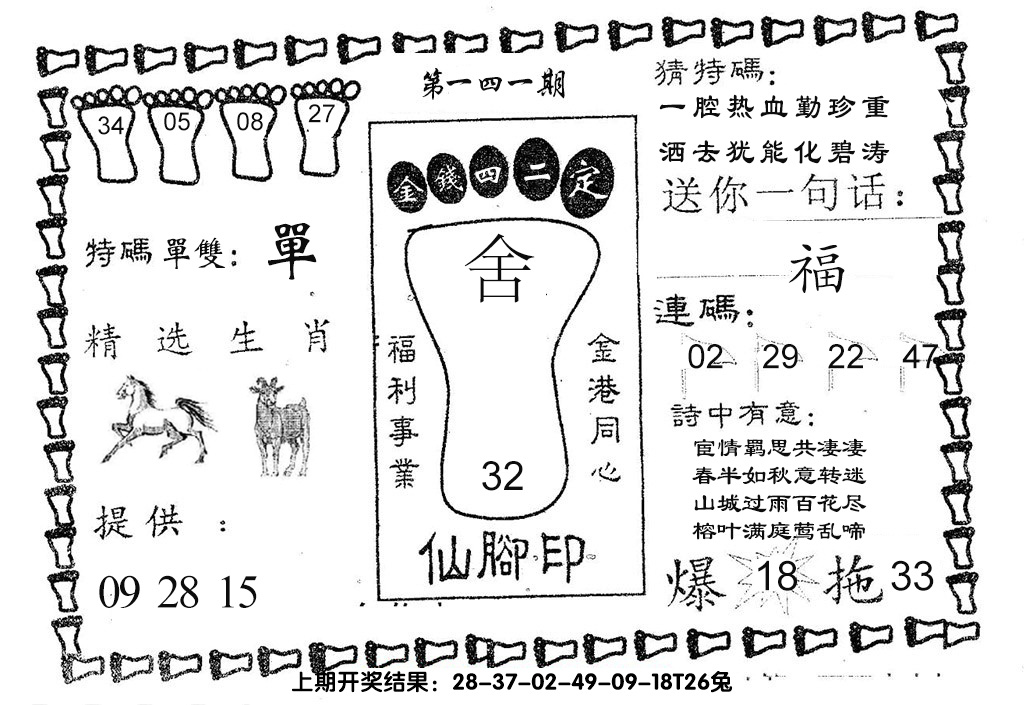 第一四一期
34 05 08 27
特碼單雙：單
精选生肖
提供：
09 28 15
金錢四二定
舍
福利事業
金港同心
32
仙腳印
猜特碼：
一腔热血勤珍重
洒去犹能化碧涛
送你一句话：
福
連碼：
02 29 22 47
詩中有意：
宦情羁思共凄凄
春半如秋意转迷
山城过雨百花尽
榕叶满庭莺乱啼
爆 18 拖 33
上期开奖结果：28-37-02-49-09-18T26兔